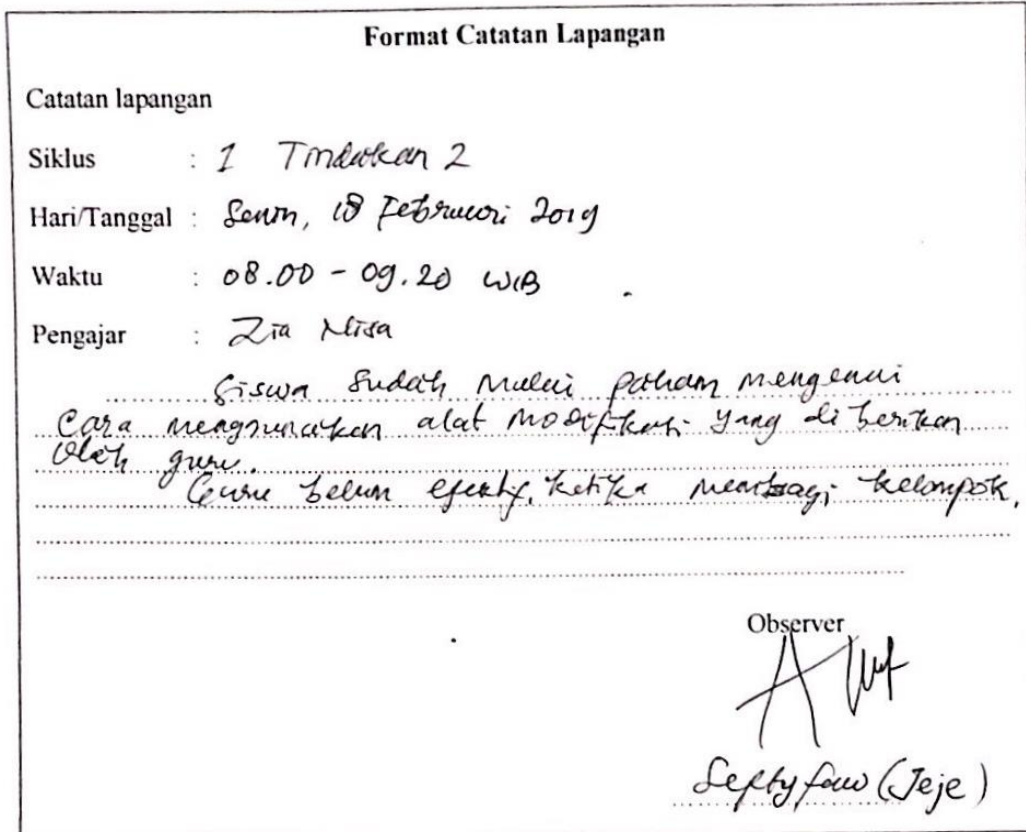 Format Catatan Lapangan
Catatan lapangan
Siklus : 1 Tindakan 2
Hari/Tanggal : Senin, 18 Februari 2019
Waktu : 08.00 - 09.20 WIB
Pengajar : Zia Nisa
Siswa sudah mulai paham mengenai
Cara menggunakan alat modifikasi yang di berikan
Oleh guru.
Guru belum efektif, ketika membagi kelompok.
Observer
(Jeje)